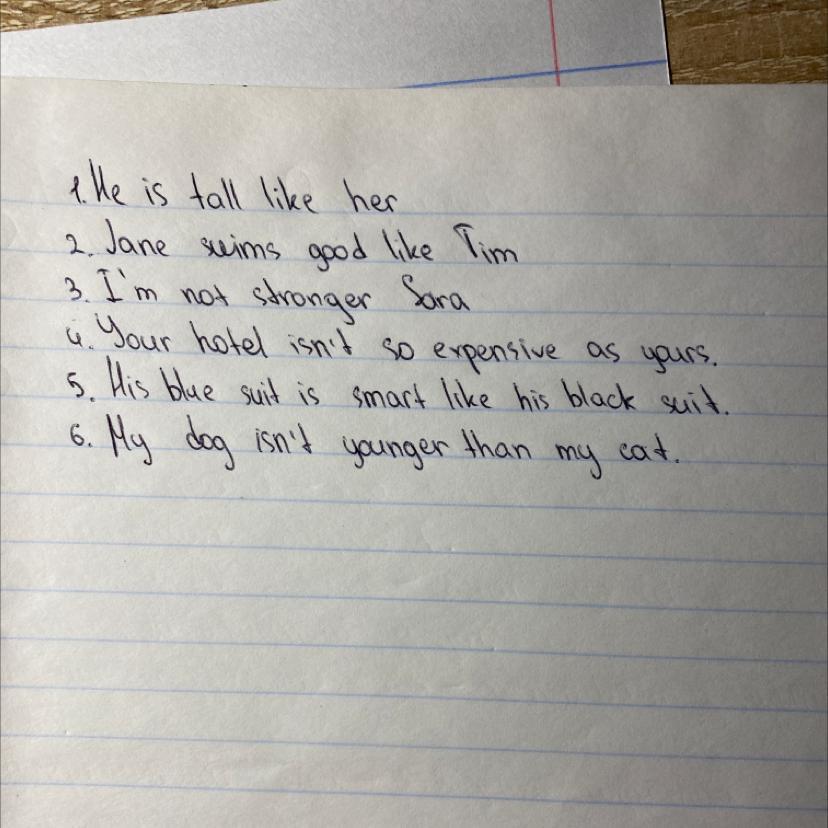 1. He is tall like her
2. Jane swims good like Tim
3. I'm not stronger Sara
4. Your hotel isn't so expensive as yours.
5. His blue suit is smart like his black suit.
6. My dog isn't younger than my cat.